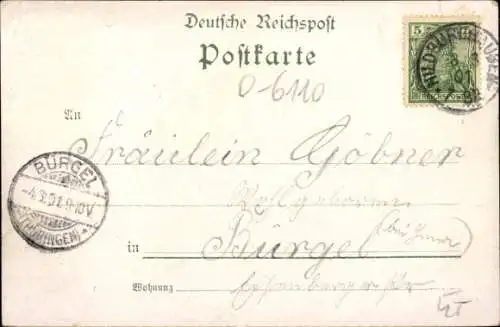 Deutsche Reichspost
Postkarte
5
HILDBURGHAUSEN
O-6110
An
Fräulein Göbner
Wohlgeboren
BÜRGEL
-4.3.01.9-10V
(THÜRINGEN)
in Bürgel (bei Jena)
Wohnung Eisenberger